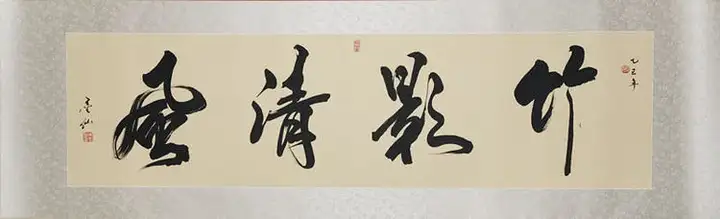 乙巳年
竹影清風